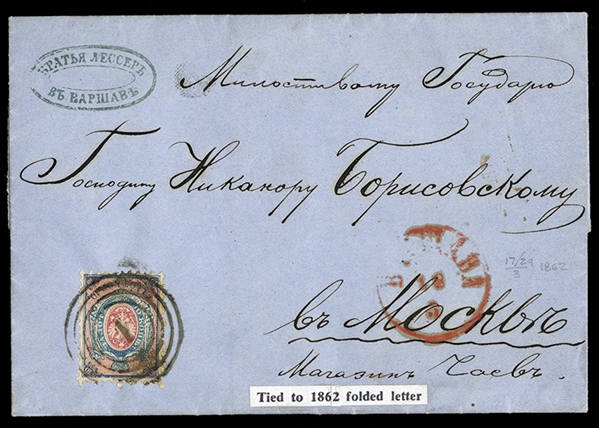 БРАТЬЯ ЛЕССЕРЪ
ВЪ ВАРШАВѢ
Милостивому Государю
Господину Никанору Борисовскому
ВАРШАВА
17/29
3 1862
въ Москвѣ
Магазинъ Чаевъ.
1
Tied to 1862 folded letter